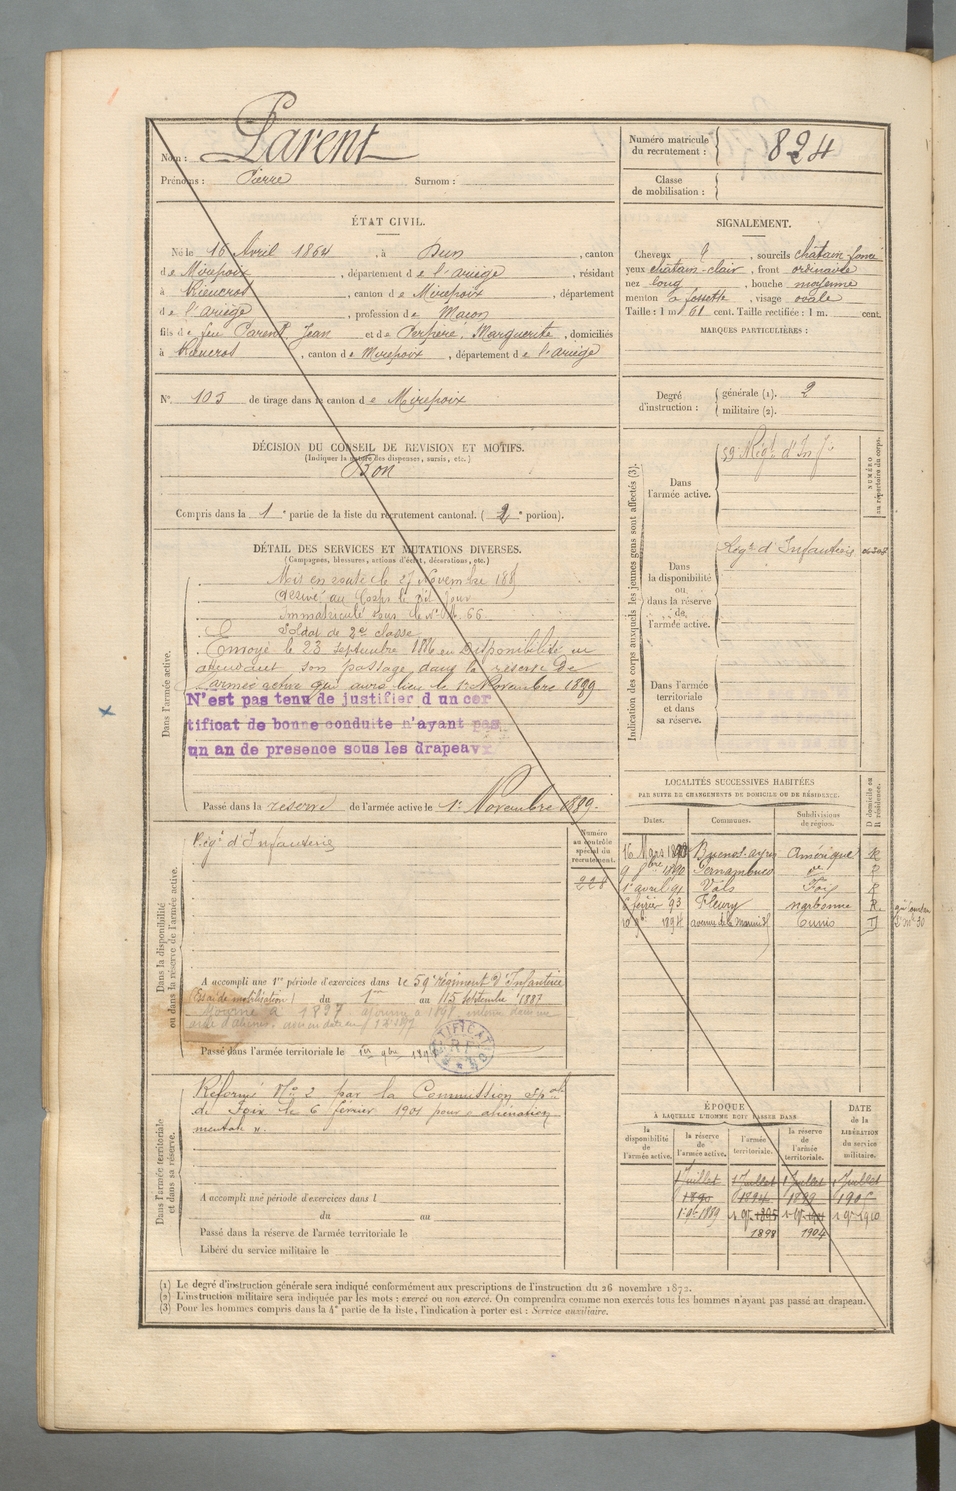 Nom : Parent
Prénoms : Pierre Surnom :
ÉTAT CIVIL.
Né le 16 Avril 1864, à Dun, canton
de Mirepoix, département de l'ariège, résidant
à Rieucros, canton de Mirepoix, département
de l'ariège, profession de Maçon
fils de feu Parent, Jean et de Marguerite, domiciliés
à Rieucros, canton de Mirepoix, département de l'ariège
N° 103 de tirage dans le canton de Mirepoix
DÉCISION DU CONSEIL DE REVISION ET MOTIFS.
(Indiquer la nature des dispenses, sursis, etc.)
Bon
Compris dans la 1e partie de la liste du recrutement cantonal. (2e portion).
DÉTAIL DES SERVICES ET MUTATIONS DIVERSES.
(Campagnes, blessures, actions d'éclat, décorations, etc.)
Dans l'armée active.
Mis en route le 27 Novembre 188
Arrivé au Corps le dit Jour
Immatriculé sous le N°
Soldat de 2e classe
Envoyé le 23 Septembre 1886 en Disponibilité en
attendant son passage dans la réserve de
l'armée active qui aura lieu le 1er Novembre 1889
N'est pas tenu de justifier d un cer
tificat de bonne conduite n'ayant pas
un an de presence sous les drapeaux
Passé dans la reserve de l'armée active le 1er Novembre 1889.
Dans la disponibilité
ou dans la réserve de l'armée active.
Régt d'Infanterie
Numéro
au contrôle
spécial du
recrutement.
228
A accompli une 1re période d'exercices dans le 59e Régiment d'Infanterie
(Essai de mobilisation) du 1er au 15 septembre 1887
Ajourné à 1897 ajourné à 1898 interné dans un
Passé dans l'armée territoriale le 1er 9bre 189
Dans l'armée territoriale
et dans sa réserve.
Réformé No 2 par la Commission Spale
de Foix le 6 février 1901 pour « aliénation
mentale ».
A accompli une période d'exercices dans l
du au
Passé dans la réserve de l'armée territoriale le
Libéré du service militaire le
Numéro matricule
du recrutement : 824
Classe
de mobilisation :
SIGNALEMENT.
Cheveux , sourcils châtain-foncé
yeux châtain-clair, front ordinaire
nez long, bouche moyenne
menton à fossette, visage ovale
Taille : 1 m 61 cent. Taille rectifiée : 1 m. cent.
MARQUES PARTICULIÈRES :
Degré
d'instruction :
générale (1). 2
militaire (2).
Indication des corps auxquels les jeunes gens sont affectés (3).
NUMÉRO
au répertoire du corps.
Dans
l'armée active.
59 Régt d'Infie
Dans
la disponibilité
ou
dans la réserve
de
l'armée active.
Régt d'Infanterie
Dans l'armée
territoriale
et dans
sa réserve.
LOCALITÉS SUCCESSIVES HABITÉES
PAR SUITE DE CHANGEMENTS DE DOMICILE OU DE RÉSIDENCE.
D domicile ou
R résidence.
Dates. Communes. Subdivisions
de région.
16 Mars 18 Buenos-ayres Amérique R
9 9bre 1890 Pernambuco do R
1er avril 91 Vals Foix R
6 février 93 Fleury narbonne R
1894 avenue de la Marine Tunis D
ÉPOQUE
À LAQUELLE L'HOMME DOIT PASSER DANS
la
disponibilité
de
l'armée active.
la réserve
de
l'armée active.
l'armée
territoriale.
la réserve
de
l'armée
territoriale.
DATE
de la
LIBÉRATION
du service
militaire.
1 Juillet 1 Juillet 1 Juillet 1 Juillet
1890 1894 1899 1905
1er 9bre 1889 1er 9bre 1895 1er 9bre 1901 1er 9bre 1910
1898 1904
(1) Le degré d'instruction générale sera indiqué conformément aux prescriptions de l'instruction du 26 novembre 1872.
(2) L'instruction militaire sera indiquée par les mots : exercé ou non exercé. On comprendra comme non exercés tous les hommes n'ayant pas passé au drapeau.
(3) Pour les hommes compris dans la 4e partie de la liste, l'indication à porter est : Service auxiliaire.